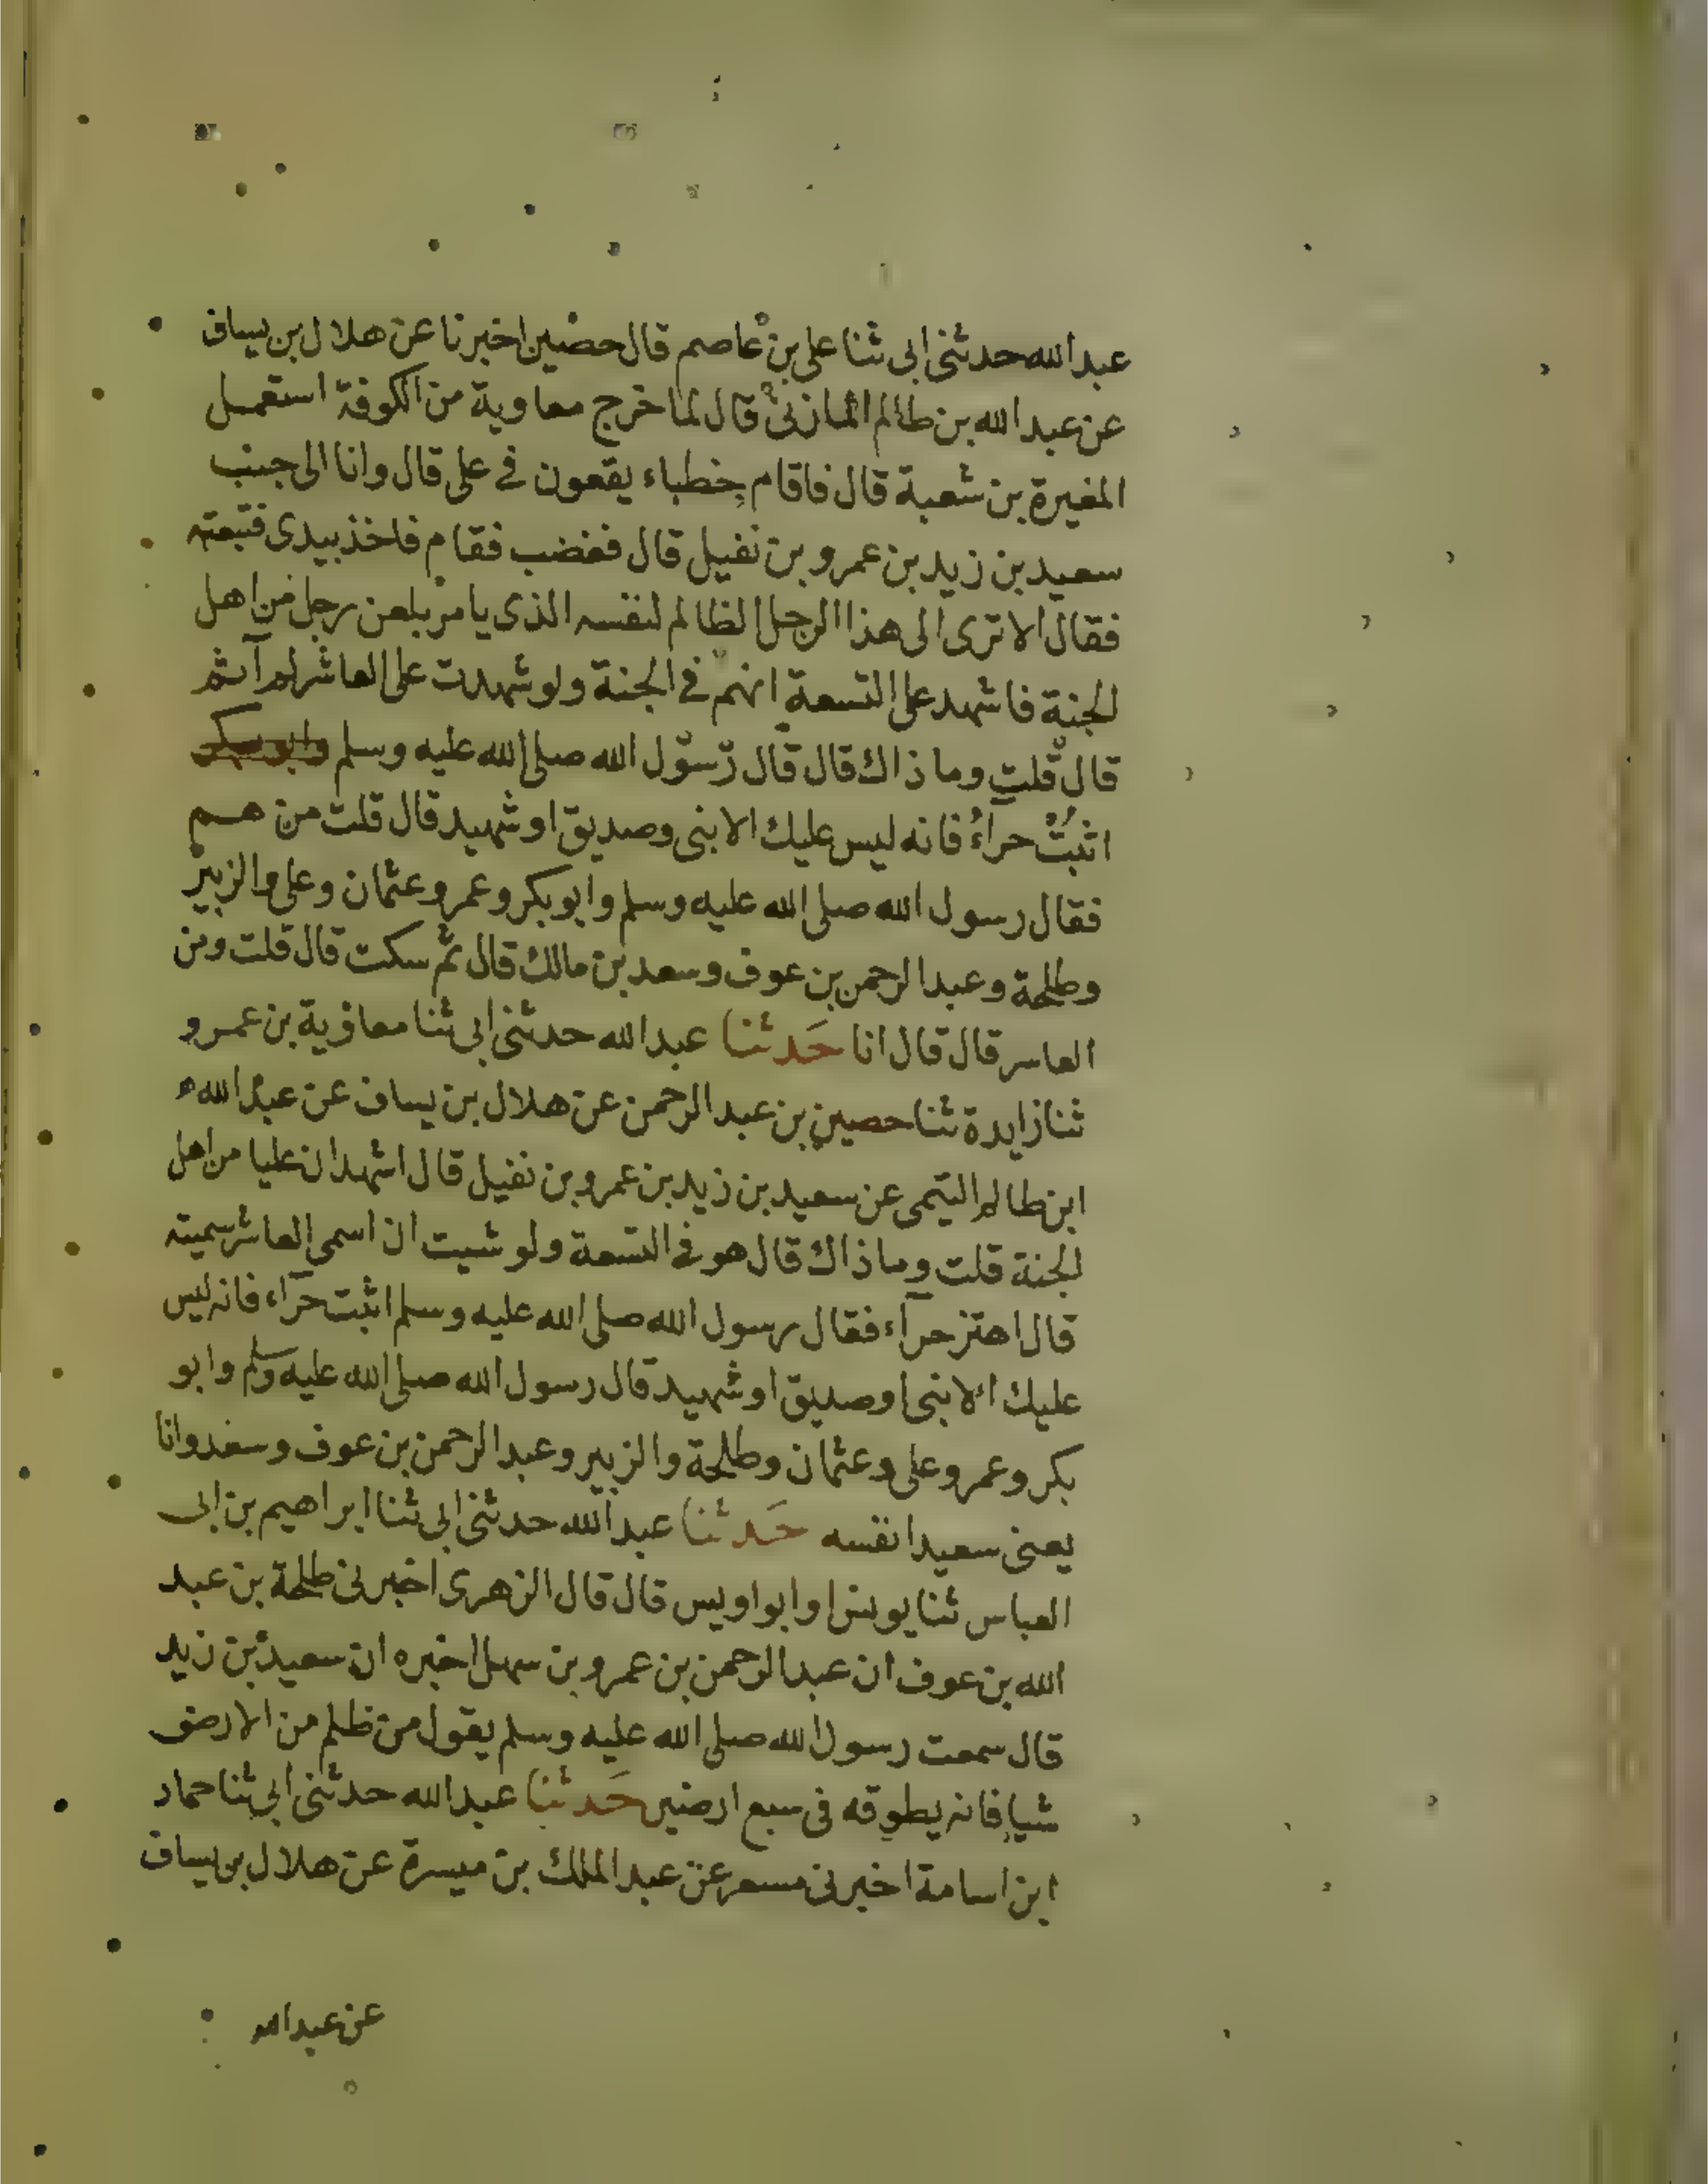 عبد الله حدثنى ابى ثنا على بن عاصم قال حصين اخبرنا عن هلال بن يساف
عن عبد الله بن ظالم المازنى قال لما خرج معاوية من الكوفة استعمل
المغيرة بن شعبة قال فاقام خطباء يقعون فى على قال وانا الى جنب
سعيد بن زيد بن عمرو بن نفيل قال فغضب فقام فاخذ بيدى فتبعته
فقال الا ترى الى هذا الرجل الظالم لنفسه الذى يامر بلعن رجل من اهل
الجنة فاشهد على التسعة انهم فى الجنة ولو شهدت على العاشر لم آثم
قال قلت وما ذاك قال قال رسول الله صلى الله عليه وسلم
اثبت حراء فانه ليس عليك الا نبى وصديق او شهيد قال قلت من هم
فقال رسول الله صلى الله عليه وسلم وابو بكر وعمر وعثمان وعلى والزبير
وطلحة وعبد الرحمن بن عوف وسعد بن مالك قال ثم سكت قال قلت ومن
العاسر قال قال انا حَدثنا عبد الله حدثنى ابى ثنا معاوية بن عمرو
ثنا زايدة ثنا حصين بن عبد الرحمن عن هلال بن يساف عن عبد الله
ابن ظالم التيمى عن سعيد بن زيد بن عمرو بن نفيل قال اشهد ان عليا من اهل
الجنة قلت وما ذاك قال هو فى التسعة ولو شيت ان اسمى العاشر سميته
قال اهتز حرآء فقال رسول الله صلى الله عليه وسلم اثبت حرآء فانه ليس
عليك الا نبى او صديق او شهيد قال رسول الله صلى الله عليه وسلم وابو
بكر وعمر وعلى وعثمان وطلحة والزبير وعبد الرحمن بن عوف وسعد وانا
يعنى سعيدا نفسه حَدثنا عبد الله حدثنى ابى ثنا ابراهيم بن ابى
العباس ثنا يونس او ابو اويس قال قال الزهرى اخبرنى طلحة بن عبد
الله بن عوف ان عبد الرحمن بن عمرو بن سهل اخبره ان سعيد بن زيد
قال سمعت رسول الله صلى الله عليه وسلم يقول من ظلم من الارض
شيا فانه يطوقه فى سبع ارضين حَدثنا عبد الله حدثنى ابى ثنا حماد
ابن اسامة اخبرنى مسعر عن عبد الملك بن ميسرة عن هلال بن يساف
عن عبد الله